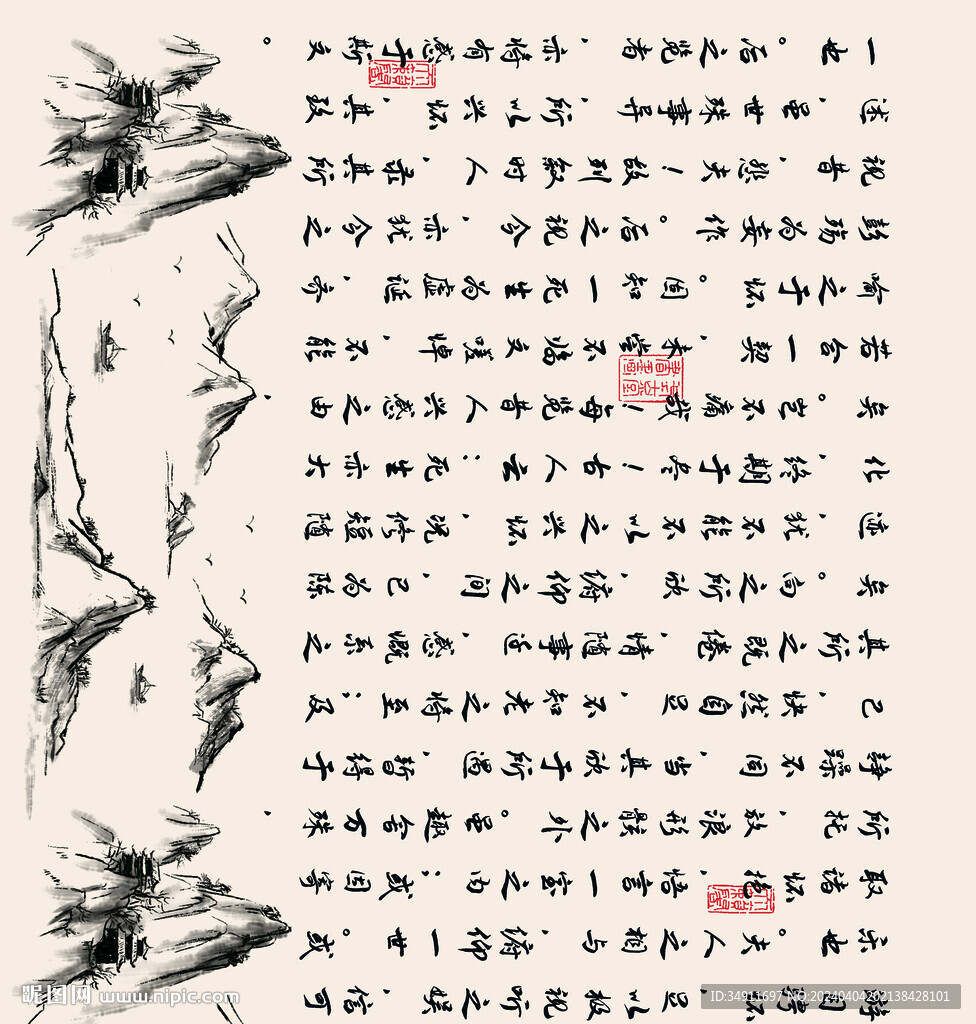 游目骋怀,足以极视听之娱,信可
乐也。夫人之相与,俯仰一世。或
取诸怀抱,悟言一室之内;或因寄
所托,放浪形骸之外。虽趣舍万殊,
静躁不同,当其欣于所遇,暂得于
己,快然自足,不知老之将至;及
其所之既倦,情随事迁,感慨系之
矣。向之所欣,俯仰之间,已为陈
迹,犹不能不以之兴怀,况修短随
化,终期于尽!古人云:死生亦大
矣。岂不痛哉!每览昔人兴感之由,
若合一契,未尝不临文嗟悼,不能
喻之于怀。固知一死生为虚诞,齐
彭殇为妄作。后之视今,亦犹今之
视昔,悲夫!故列叙时人,录其所
述,虽世殊事异,所以兴怀,其致
一也。后之览者,亦将有感于斯文。
昵图网 www.nipic.com
ID:34911697 NO:20240404202138428101